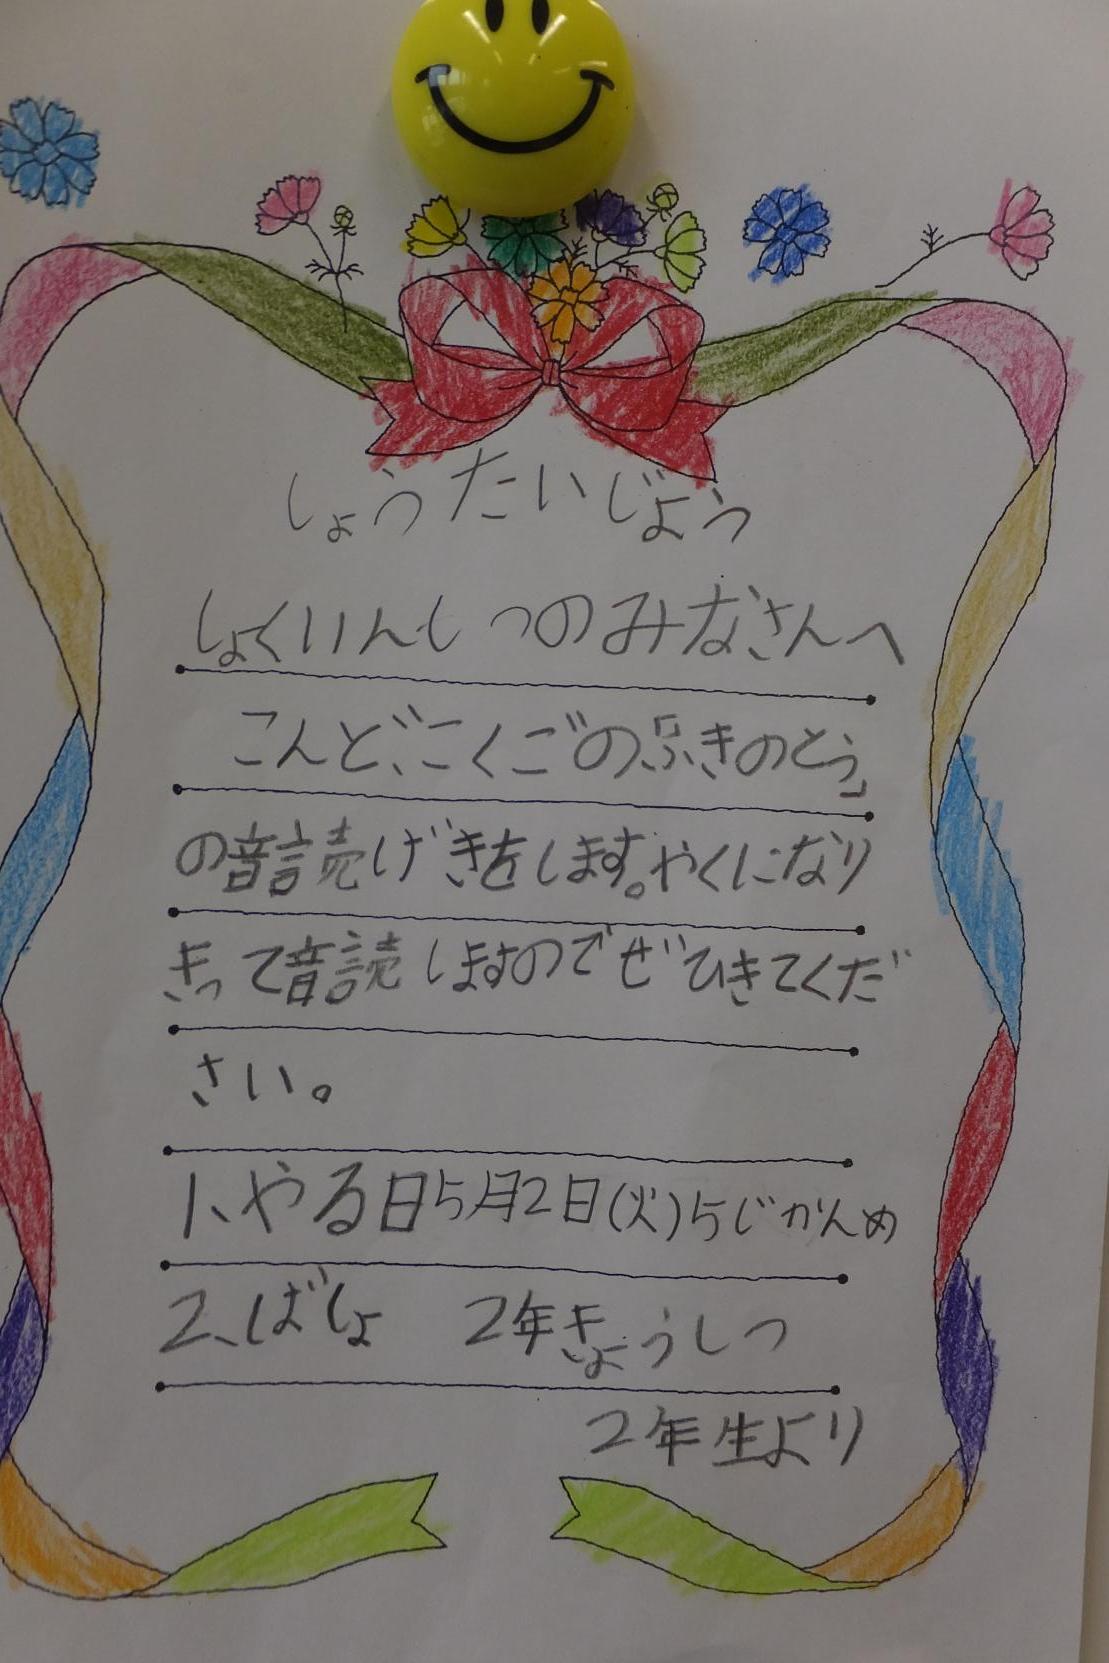 しょうたいじょう
しょくいんしつのみなさんへ
こんど、こくごの「ふきのとう」
の音読げきをします。やくになり
きって音読しますのでぜひきてくだ
さい。
1、やる日5月2日(火)5じかんめ
2、ばしょ 2年きょうしつ
2年生より